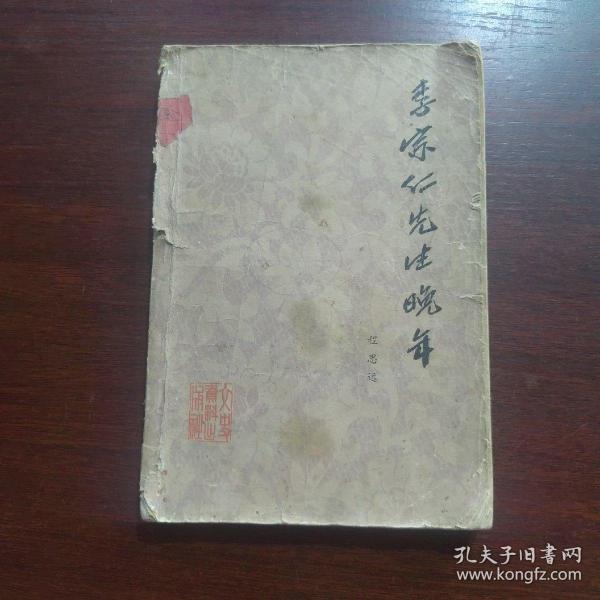 李宗仁先生晚年
程思远
文史
资料出
版社
孔夫子旧书网
www.kongfz.com